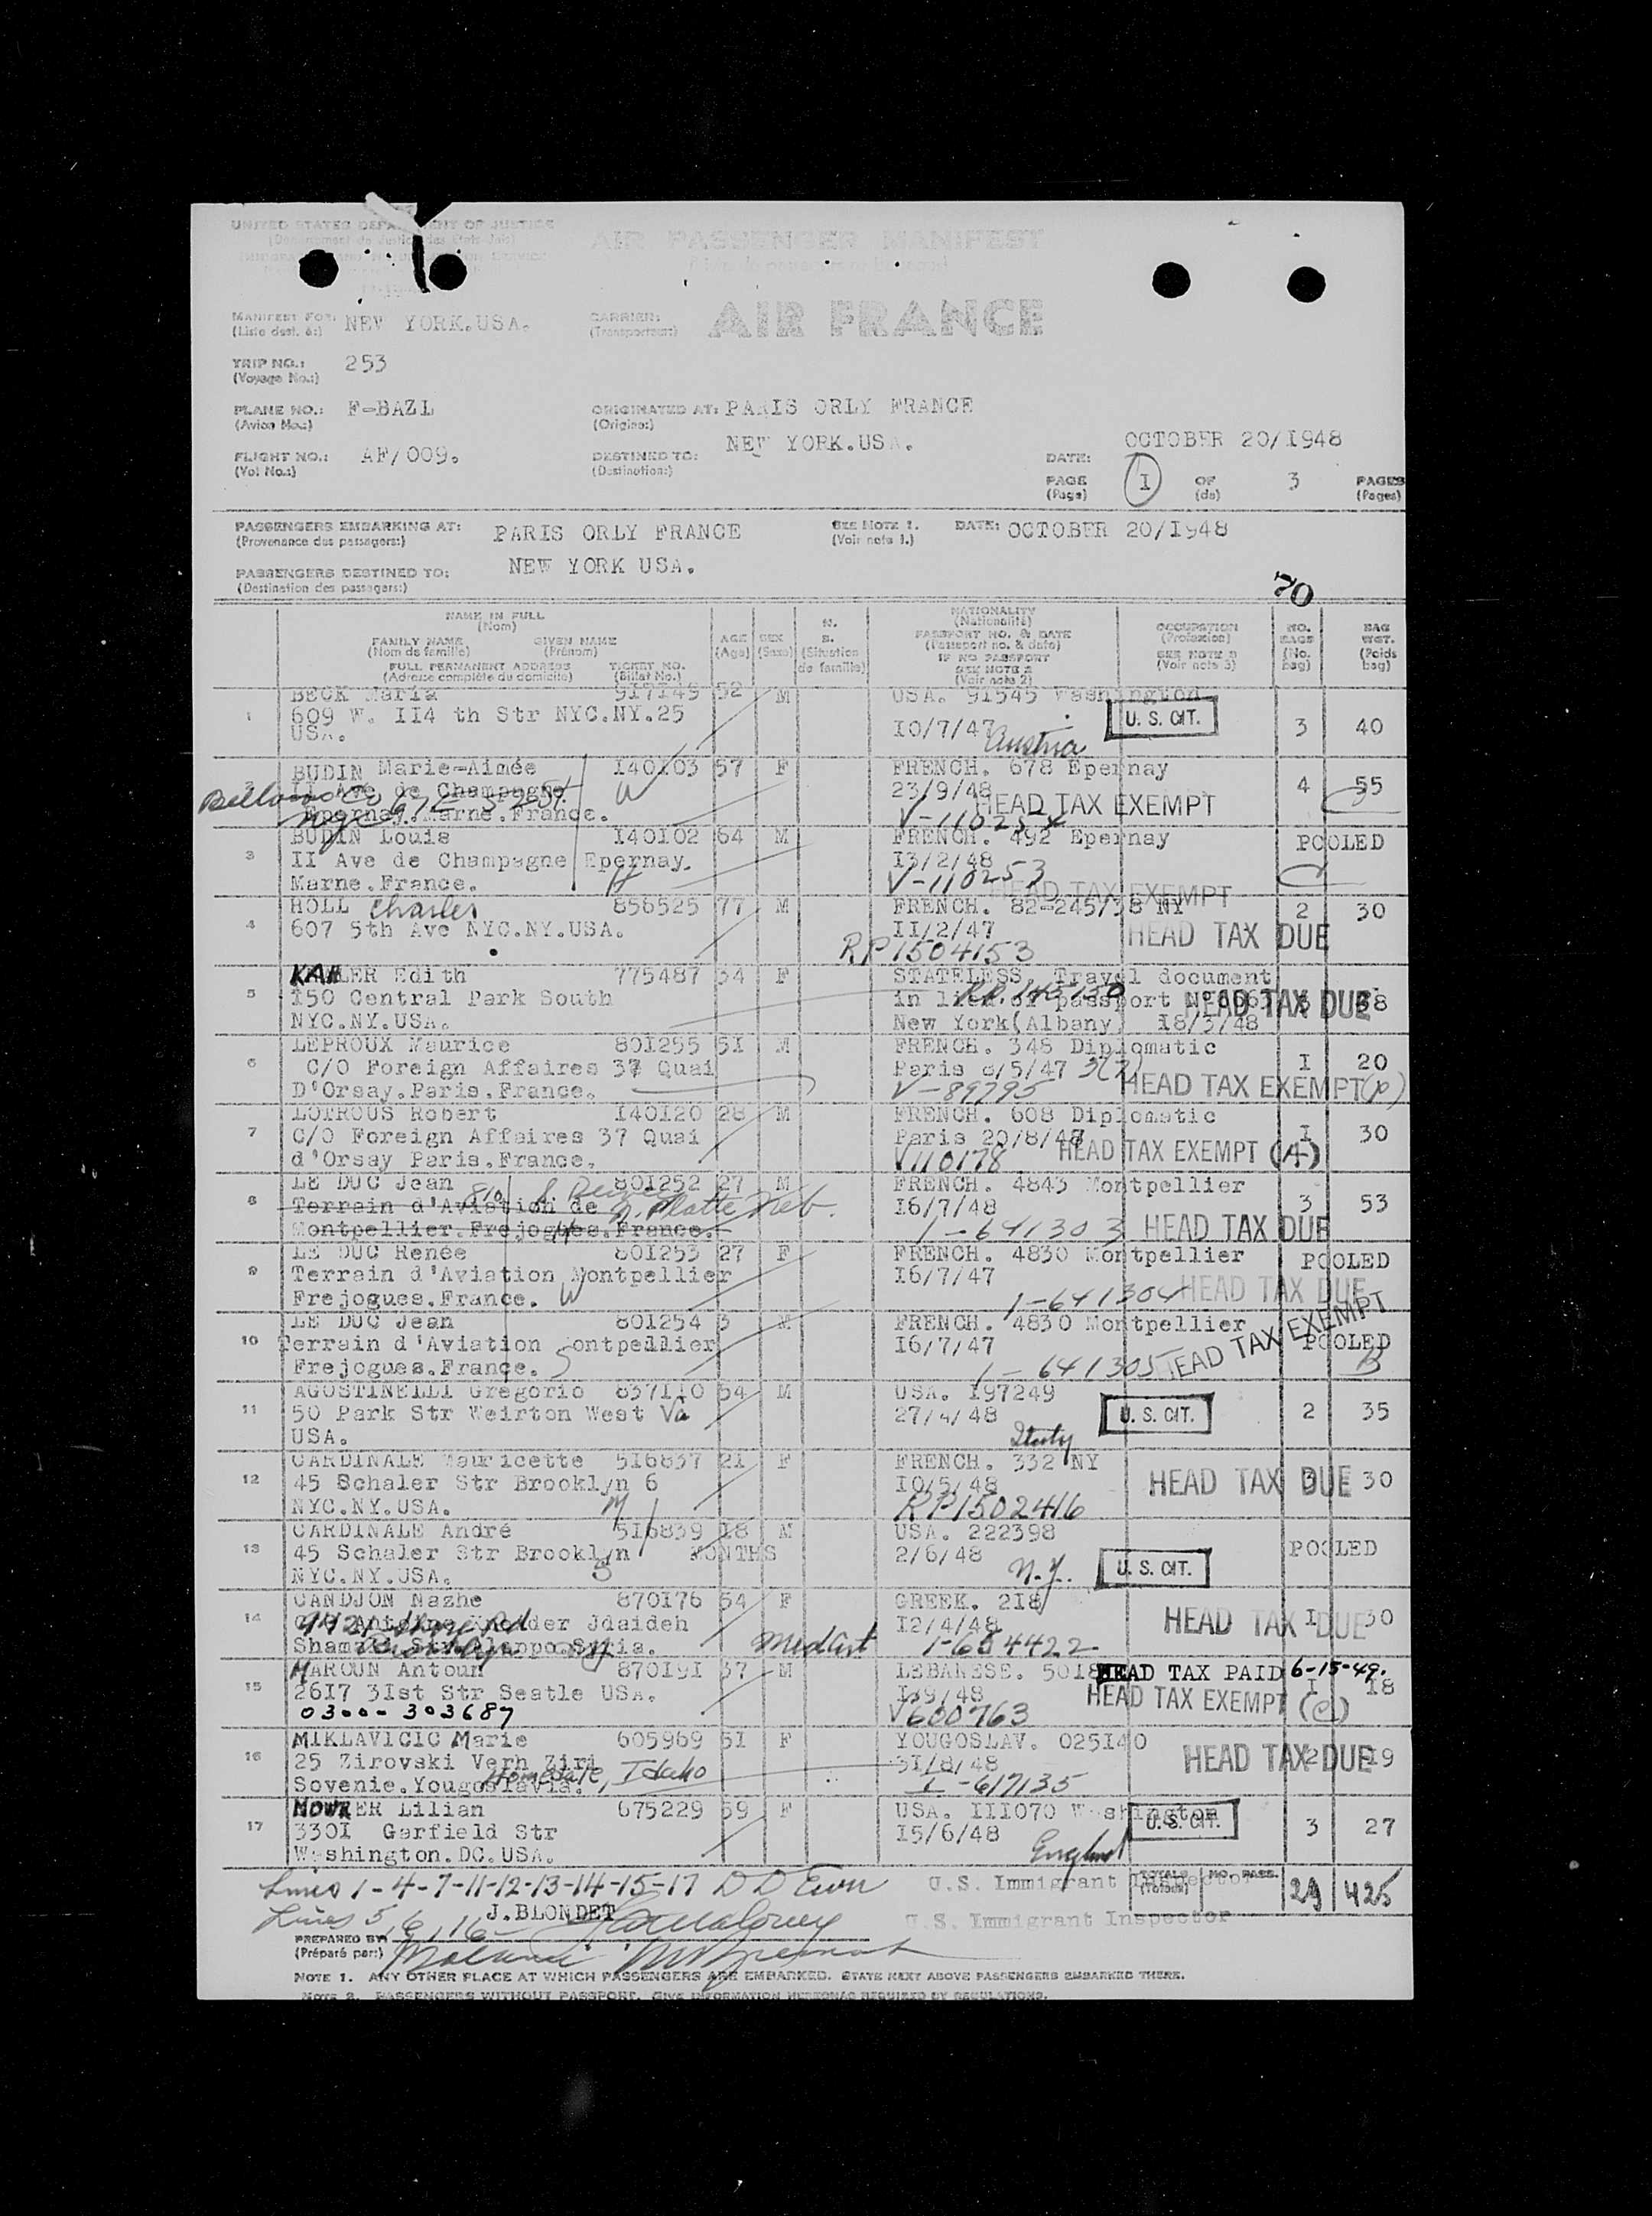 UNITED STATES DEPARTMENT OF JUSTICE
AIR PASSENGER MANIFEST
MANIFEST FOR: NEW YORK.USA. CARRIER: AIR FRANCE
(Liste dest. à:) (Transporteur:)
TRIP NO.: 253
(Voyage No.:)
PLANE NO.: F-BAZL ORIGINATED AT: PARIS ORLY FRANCE
(Avion No.:) (Origine:)
FLIGHT NO.: AF/009. DESTINED TO: NEW YORK.USA. DATE: OCTOBER 20/I948
(Vol No.:) (Destination:)
PAGE I OF 3 PAGES
(Page) (de) (Pages)
PASSENGERS EMBARKING AT: PARIS ORLY FRANCE SEE NOTE 1. DATE: OCTOBER 20/I948
(Provenance des passagers:) (Voir note 1.)
PASSENGERS DESTINED TO: NEW YORK USA.
(Destination des passagers:)
70
NAME IN FULL
(Nom)
FAMILY NAME GIVEN NAME
(Nom de famille) (Prénom)
FULL PERMANENT ADDRESS TICKET NO.
(Adresse complète du domicile) (Billet No.)
AGE SEX
(Age) (Sexe) (Situation de famille)
NATIONALITY
(Nationalité)
PASSPORT NO. & DATE
(Passeport no. & date)
IF NO PASSPORT
SEE NOTE 2
(Voir note 2)
OCCUPATION
(Profession)
SEE NOTE 3
(Voir note 3)
NO. BAGS
(No. bag)
BAG WGT.
(Poids bag)
1 BECK Maria 917149 52 M USA. 91545 Washington
609 W. II4 th Str NYC.NY.25 I0/7/47 U. S. CIT. 3 40
USA. Austria
2 BUDIN Marie-Aimée I40I03 57 F FRENCH. 678 Epernay
II Ave de Champagne W 23/9/48 4 55
Epernay.Marne.France. V-110254 HEAD TAX EXEMPT
3 BUDIN Louis I40I02 64 M FRENCH. 492 Epernay POOLED
II Ave de Champagne Epernay. I3/2/48
Marne.France. V-110253 HEAD TAX EXEMPT
4 HOLL Charles 856525 77 M FRENCH. 82-245/38 NY 2 30
607 5th Ave NYC.NY.USA. II/2/47 HEAD TAX DUE
RP1504153
5 KAHLER Edith 775487 34 F STATELESS. Travel document
I50 Central Park South in lieu of passport HEAD TAX DUE
NYC.NY.USA. New York(Albany) I8/3/48
6 LEPROUX Maurice 80I255 5I M FRENCH. 348 Diplomatic
C/O Foreign Affaires 37 Quai Paris 6/5/47 3(2) I 20
D'Orsay.Paris.France. V-89795 HEAD TAX EXEMPT
7 LOTROUS Robert I40I20 28 M FRENCH. 608 Diplomatic
C/O Foreign Affaires 37 Quai Paris 20/8/48 I 30
d'Orsay Paris.France. V110178 HEAD TAX EXEMPT (A)
8 LE DUC Jean 80I252 27 M FRENCH. 4843 Montpellier
Terrain d'Aviation de N. Platte Neb. I6/7/48 3 53
Montpellier.Frejogues.France. 1-641303 HEAD TAX DUE
9 LE DUC Renée 80I253 27 F FRENCH. 4830 Montpellier POOLED
Terrain d'Aviation Montpellier I6/7/47
Frejogues.France. W 1-641304 HEAD TAX DUE
10 LE DUC Jean 80I254 3 M FRENCH. 4830 Montpellier
Terrain d'Aviation Montpellier I6/7/47 POOLED
Frejogues.France. S 1-641305 HEAD TAX EXEMPT
11 AGOSTINELLI Gregorio 837II0 54 M USA. I97249
50 Park Str Weirton West Va 27/4/48 U. S. CIT. 2 35
USA. Italy
12 CARDINALE Mauricette 5I6837 2I F FRENCH. 332 NY
45 Schaler Str Brooklyn 6 I0/5/48 HEAD TAX DUE 3 30
NYC.NY.USA. M RP1502416
13 CARDINALE André 5I6839 I8 M USA. 222398
45 Schaler Str Brooklyn MONTHS 2/6/48 POOLED
NYC.NY.USA. S N.Y. U. S. CIT.
14 CANDJON Nazhe 870I76 54 F GREEK. 2I8
Jdaideh I2/4/48 HEAD TAX DUE I 30
Syria. 1-654422
15 MAROUN Antoun 870I9I 37 M LEBANESE. HEAD TAX PAID 6-15-49.
26I7 3Ist Str Seatle USA. HEAD TAX EXEMPT I I8
0300-303687 V600763
16 MIKLAVICIC Marie 605969 5I F YOUGOSLAV. 025I40
25 Zirovski Verh Ziri 3I/8/48 HEAD TAX DUE 2 I9
Sovenie.Yougoslavia. Homedale, Idaho 1-617135
17 MOWRER Lilian 675229 59 F USA. III070 Washington
330I Garfield Str I5/6/48 U. S. CIT. 3 27
Washington.DC.USA. England
Lines 1-4-7-11-12-13-14-15-17 U.S. Immigrant Inspector TOTALS NO. PASS. 29 425
Lines 5, 6, 16 J.BLONDET U.S. Immigrant Inspector
PREPARED BY:
(Préparé par:)
NOTE 1. ANY OTHER PLACE AT WHICH PASSENGERS ARE EMBARKED. STATE NEXT ABOVE PASSENGERS EMBARKED THERE.
NOTE 2. PASSENGERS WITHOUT PASSPORT. GIVE INFORMATION HEREON AS REQUIRED BY REGULATIONS.